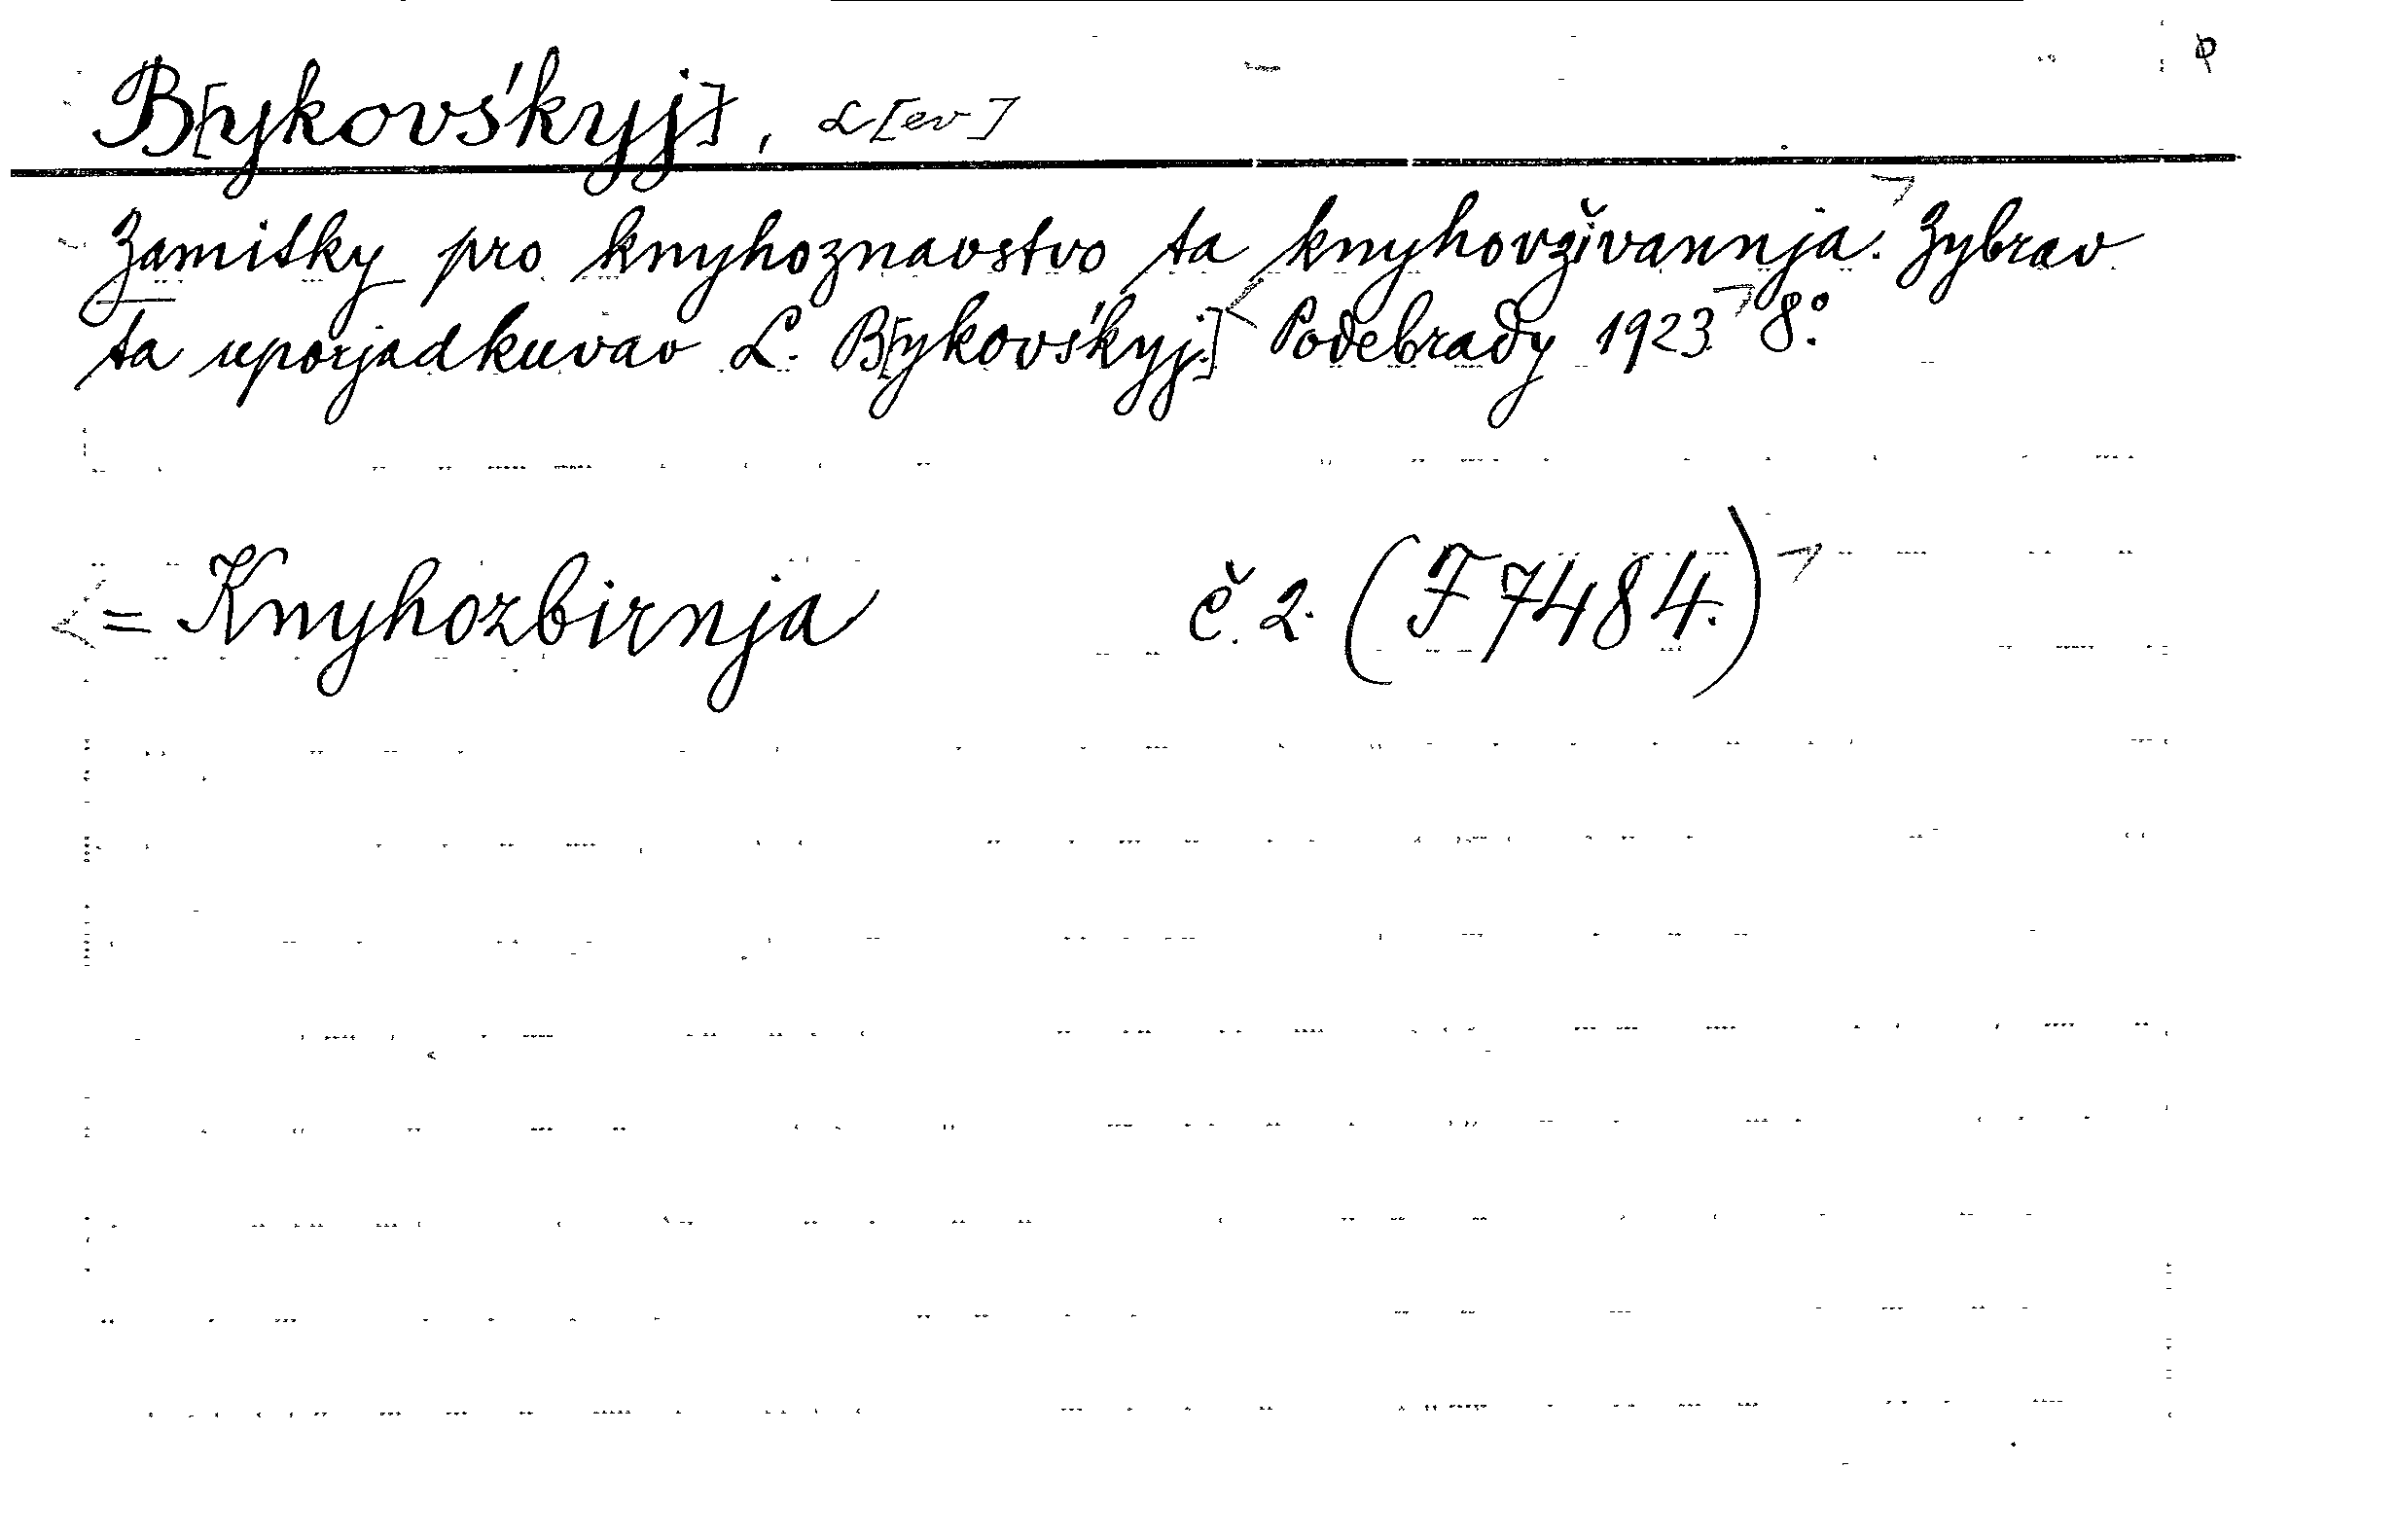 B[ykovśkyj], L[ev]
Zamitky pro knyhoznavstvo ta knyhovživannja. Zybrav
ta uporjadkuvav L. B[ykovśkyj.] Poděbrady 1923. 8°.
= Knyhozbirnja č. 2. (F 7484.)